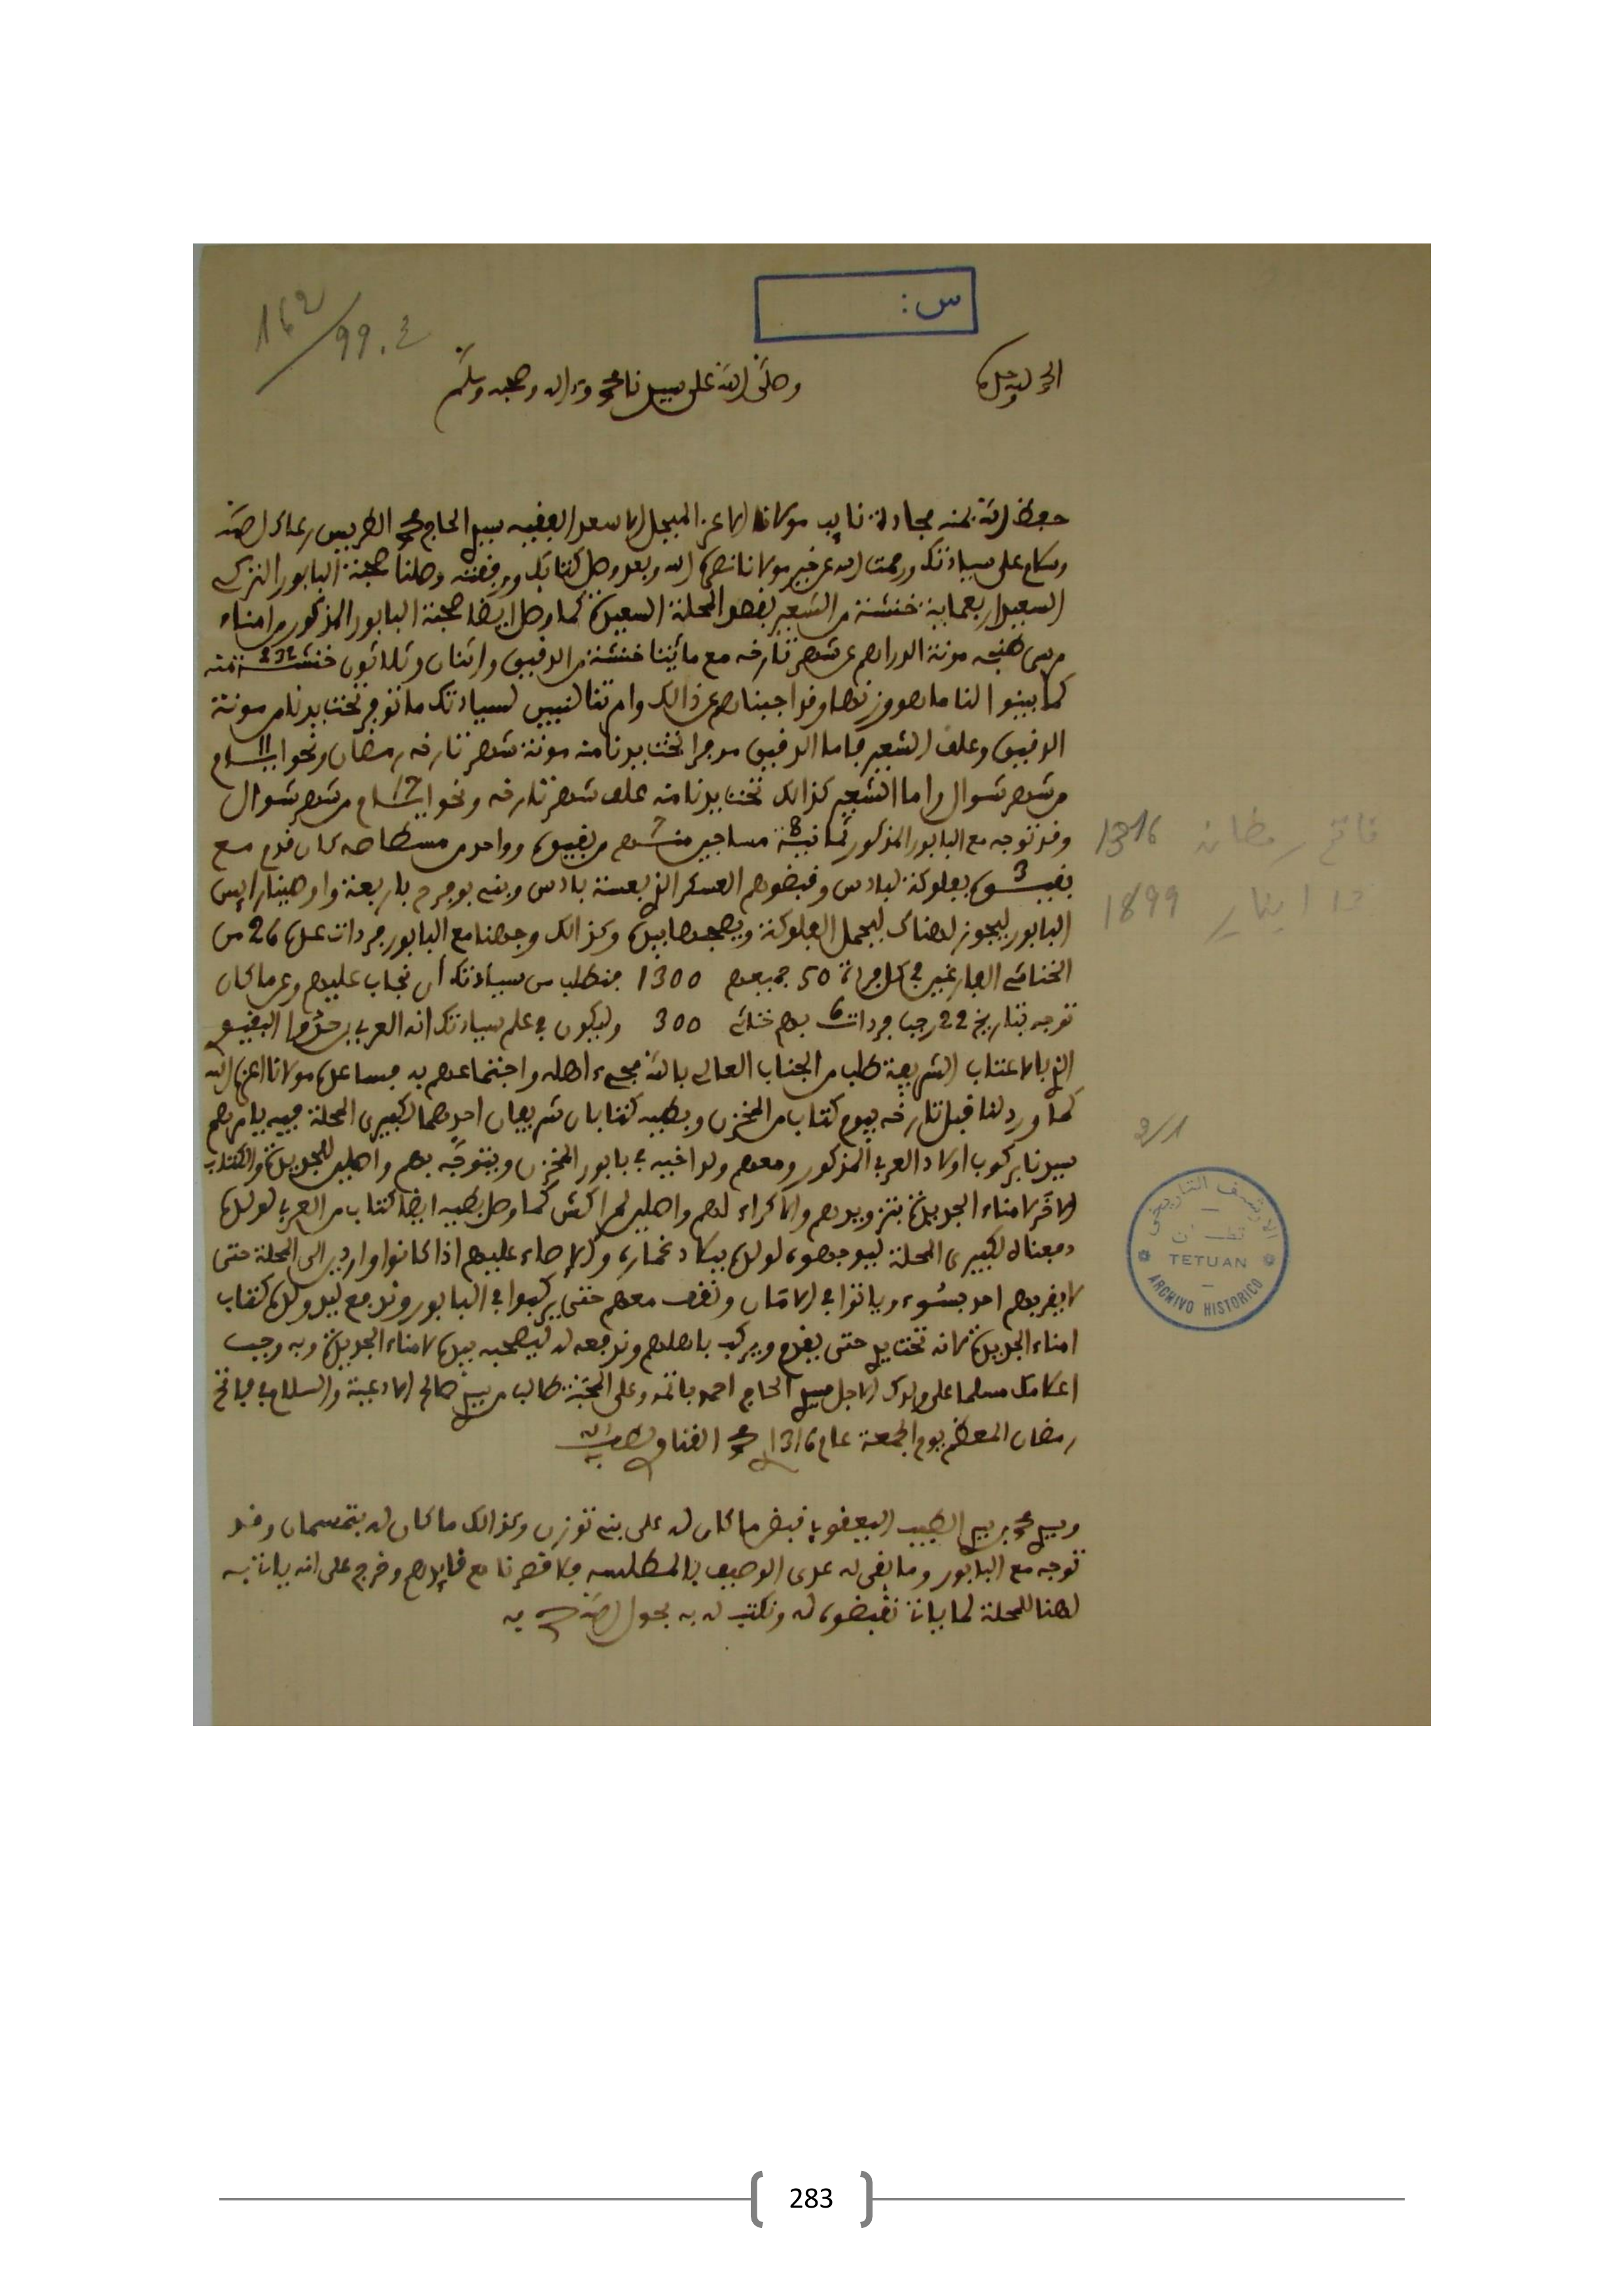 س :
16 2/99.2
الحمد لله وحده
وصلى الله على سيدنا محمد وءاله وصحبه وسلم
حفظ الله بمنه مجادة نايب مولانا الاعز المبجل الاسعد الفقيه سيدي الحاج محمد الطريس رعاك الله
وسلام على سيادتك ورحمت الله عن خير مولانا نصره الله وبعد وصل كتابك ورفقته وصلنا صحبة البابور التركي
السعيد اربعماية خنشة من الشعير بقصد المحلة السعيدة كما وصل ايضا صحبة البابور المذكور من امناء
مرسى طنجه مونة الدراهم عن شهر تارخه مع مائيتا خنشة من الدقيق واثنان وثلاثون خنشة 232
كما بينوا لنا ما هو وزنها وقد اجبناهم عن ذالك وامرتنا لنبين لسيادتك ما توفر تحت يدنا من مونة
الدقيق وعلف الشعير فاما الدقيق موفرا تحت يدنا منه مونة شهر تارخه رمضان ونحو ايام 11
من شهر شوال واما الشعير كذالك تحت يدنا منه علف شهر تارخه ونحو ايام 17 من شهر شوال
وقد توجه مع البابور المذكور ثمانية 8 مساجين منهم 7 من بقيوة وواحد من مسطاصه كان قدم مع
بقيوة 3 بفلوكة لبادس وقبضوهم العسكر الذي بعسة بادس وبني بوفرح باربعة واوصينا رايس
البابور ليجوز لهناك ليحمل الفلوكة ويصحبها بيده وكذالك وجهنا مع البابور فردات عدد 26 من
الخناشي الفارغين في كل فردة 50 جميعهم 1300 فنطلب من سيادتك أن نجاب عليهم وعن ما كان
توجه بتاريخ 22 رجب فردات 6 بهم خناشي 300 وليكون في علم سيادتك انه العربي بن حدو البقيوي
الذي بالاعتاب الشريفة طلب من الجناب العالي بالله مجيء اهله واجتماعهم به فساعده مولانا اعزه الله
كما ورد لنا قبل تارخه بيوم كتاب من المخزن وبطيه كتابان شريفان احدهما لكبيري المحلة فيه يامرهم
سيدنا بركوب اولاد العربي المذكور ومعهم ولد اخيه في بابور المخزن ويتوجه بهم واصلين للجديدة والكتاب
الاخر لامناء الجديدة بتزويدهم والاكراء لهم واصلين لمراكش كما وصل بطيه ايضا كتاب من العربي لولده
ومعناه لكبيري المحلة ليوجهوه لولده ببلاد غمارة والاوصاء عليهم اذا كانوا واردين الى المحلة حتى
لا يقربهم احد بسوء وياتوا في الامان ونقف معهم حتى يركبوا في البابور وندفع ليد ولده كتاب
امناء الجديدة لانه تحت يدي حتى يقدم ويركب باهلهم وندفعه له ليصحبه بيده لامناء الجديدة وبه وجب
اعلامك مسلما على ولدك الاجل سيدي الحاج احمد باتمه وعلى المحبة طالب من سيدي صالح الادعية والسلام في فاتح
رمضان المعظم يوم الجمعة عام 1316 محمد القناوي لطف الله به
وسيدي محمد بن سيدي الطيب اليعقوبي قبض ما كان له على بني توزين وكذالك ما كان له بتمسمان وقد
توجه مع البابور وما بقي له عدى الوصيف بالمطلسه فلا قصرنا مع قايدهم وخرج على انه ياتيه
لهنا للمحلة لما ياتي نقبضوه له ونكتب له به بحول الله صح به
فاتح رمضان 1316
13 اينار 1899
2/1
الارشيف التاريخي
تطــوان
TETUAN
ARCHIVO HISTORICO
283